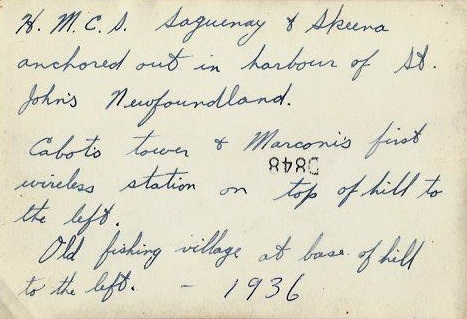 H. M. C. S. Saguenay & Skeena
anchored out in harbour of St.
John's Newfoundland.
Cabot's tower & Marconi's first
D848
wireless station on top of hill to
the left.
Old fishing village at base of hill
to the left. - 1936